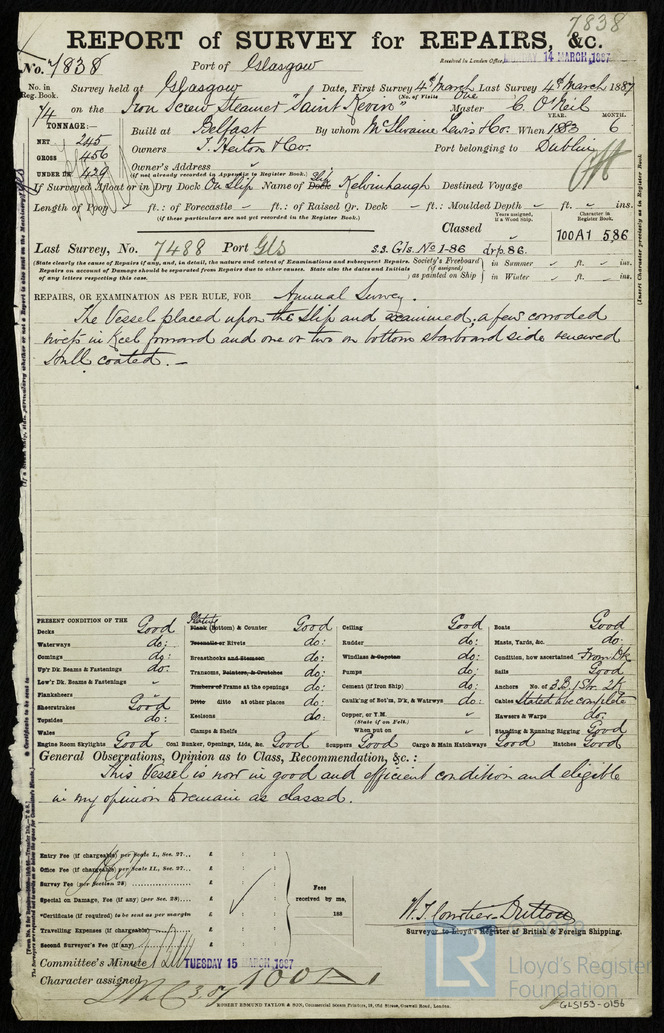 7838
REPORT of SURVEY for REPAIRS, &c.
No. 7838 Port of Glasgow Received in London Office, MONDAY 14 MARCH, 1887
No. in Reg. Book. Survey held at Glasgow Date, First Survey 4th March Last Survey 4th March 1887
(No. of Visits One)
74 on the Iron Screw Steamer "Saint Kevin" Master C. O'Neil
TONNAGE:— YEAR. MONTH.
NET 245 Built at Belfast By whom McIlwaine Lewis & Co. When 1883 6
GROSS 456 Owners T. Heiton & Co. Port belonging to Dublin
UNDER DK 429 Owner's Address
(If not already recorded in Appendix to Register Book.)
If Surveyed Afloat or in Dry Dock On Slip Name of Slip Dock Kelvinhaugh Destined Voyage
Length of Poop ft.: of Forecastle ft.: of Raised Qr. Deck ft.: Moulded Depth ft. ins.
(if these particulars are not yet recorded in the Register Book.)
Years assigned, if a Wood Ship. Character in Register Book.
Classed 100A1 5,86
Last Survey, No. 7488 Port Gls S.S. Gls. No 1-86 drp. 86.
(State clearly the cause of Repairs if any, and, in detail, the nature and extent of Examinations and subsequent Repairs.
Repairs on account of Damage should be separated from Repairs due to other causes. State also the dates and Initials
of any letters respecting this case.
Society's Freeboard (if assigned) as painted on Ship in Summer ft. ins.
in Winter ft. ins.
REPAIRS, OR EXAMINATION AS PER RULE, FOR Annual Survey.
The Vessel placed upon the Slip and examined, a few corroded
rivets in Keel forward and one or two on bottom starboard side renewed
& hull coated.—
PRESENT CONDITION OF THE
Decks Good
Waterways do:
Comings do:
Up'r Dk. Beams & Fastenings do:
Low'r Dk. Beams & Fastenings
Planksheers
Sheerstrakes Good
Topsides do:
Wales
Plating Plank (Bottom) & Counter Good
Treenails or Rivets do:
Breasthooks and Stemson do:
Transoms, Pointers, & Crutches do:
Timbers or Frames at the openings do:
Ditto ditto at other places do:
Keelsons do:
Clamps & Shelfs
Ceiling Good
Rudder do:
Windlass & Capstan do:
Pumps do:
Cement (if Iron Ship) do:
Caulk'ng of Bot'm, D'k, & Watrwys do:
Copper, or Y.M.
(State if on Felt.)
When put on
Boats Good
Masts, Yards, &c. do:
Condition, how ascertained From Dk
Sails Good
Anchors No. of 3B, 1Str. 2K
Cables Stated to be complete
Hawsers & Warps do:
Standing & Running Rigging Good
Engine Room Skylights Good Coal Bunker, Openings, Lids, &c. Good Scuppers Good Cargo & Main Hatchways Good Hatches Good
General Observations, Opinion as to Class, Recommendation, &c.:
This Vessel is now in good and efficient condition and eligible
in my opinion to remain as classed.
Entry Fee (if chargeable) per Scale I., Sec. 27... £ : :
Office Fee (if chargeable) per Scale II., Sec. 27... £ : :
Survey Fee (per Section 28) £ : :
Special on Damage, Fee (if any) (per Sec. 28).... £ : :
*Certificate (if required) to be sent as per margin
Travelling Expenses (if chargeable) £ : :
Second Surveyor's Fee (if any) £ : :
Fees received by me, 188
Surveyor to Lloyd's Register of British & Foreign Shipping.
Committee's Minute TUESDAY 15 MARCH 1887
Character assigned 100A1
ROBERT EDMUND TAYLOR & SON, Commercial Steam Printers, 19, Old Street, Goswell Road, London.
LR
Lloyd's Register
Foundation
GLS153-0156